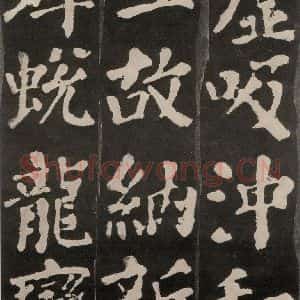 吸沖和
故納新
蛻龍
Shufawang.CN